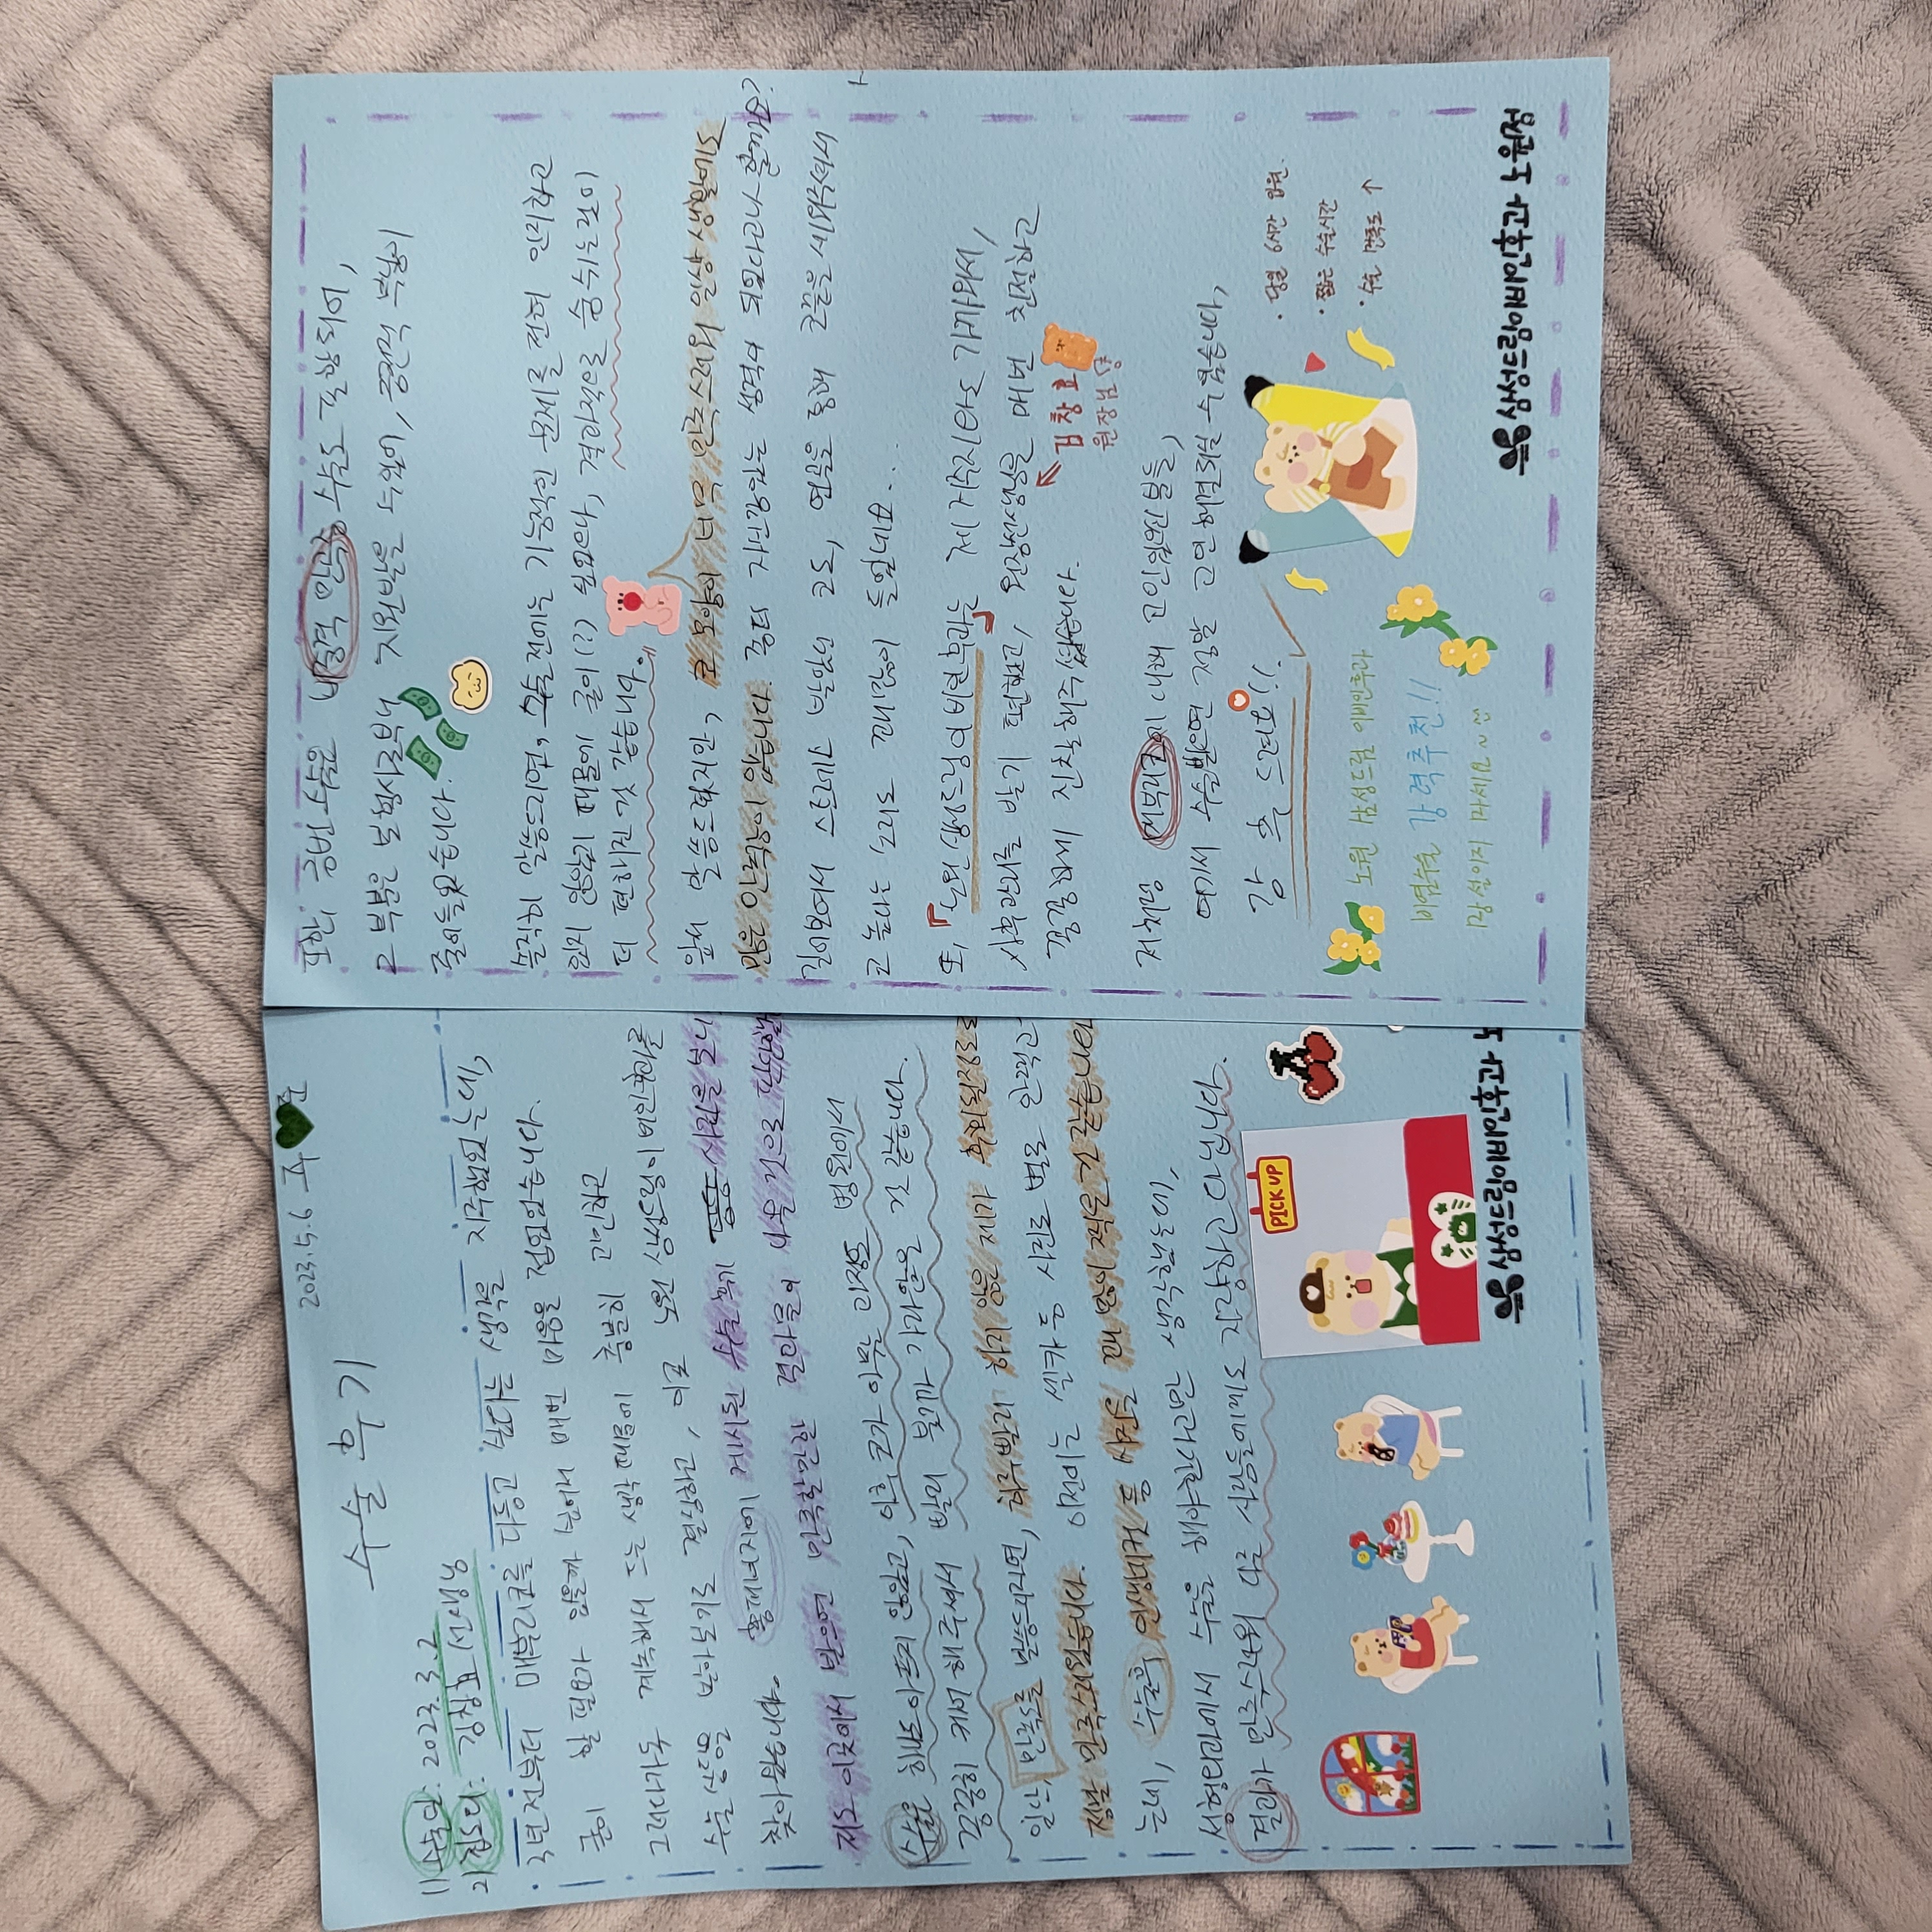 2023.5.6 주 준
수술후기
1) 수술일: 2023.3.2
2) 집도의: 김창효 선생님
3년 전부터 매부리코를 다듬고 싶다는 생각을 자주했었는데,
굳이 할 필요가 있을까 싶어서 매번 마음을 접었었습니다.
그러다가도 계속해서 드는 생각 때문에 충분히 고민하고
수술 상담을 받아보기로 결심하고, 이곳 노원 삼성드림이비인후과를
찾아왔습니다. 홈페이지에 게시된 수술 후기 사진을 보니
저도 이곳에서 받으면 만족할만한 결과물이 나올 것으로 판단했
수술은 하나도 아프지 않았고, 이후 코가 아무는 과정도 병원에서
꼼꼼히 케어 해주셔서 빨리 붓기가 가라앉은 것 같습니다.
일단, 만족도를 말씀드리자면, 하루빨리 하지 않은 제가 후회된정도로
정말 만족스러웠습니다. 이전에는 셀카 등 사진도 별로 안찍고
는데, 수술후 인생네컷 등 사진을 꽤 많이 찍은 것 같습니다
성형외과에서 수술을 해야한다고만 생각했는데,
결과가 만족스러워 다른 사람들에게도 자랑하고 다닙니다.
PICK UP
삼성드림이비인후과 노
또한, 금번 수술은 비중격 만곡증 수술도 포함되어,
그 부분은 보험사로부터 지원받을 수 있어, 금전적 부담이
줄어들었습니다.
솔직히 말씀드리면, 수술전에는 기능적인 문제를 전혀 인지하고
있지 않았기 때문에 굳이(?) 싶었으나, 결과적으로 숨 쉬는 것이
더 편해진 것 같습니다.
앞서 말씀드렸지만, 코 모양이 너무 만족스러워 일상 생활에도
많은 만족감이 있습니다. 좀더 자신감있는 성격이 되었다고나 할까요?
길어보여서 스트레스 받았던 코도, 연골을 통해 코끝을 세워주셔서
코 높다는 소리도 꽤많이 들었네요...
또, 『노원 삼성드림이비인후과』는 제 거주지와도 가까워서,
사후관리를 받기 편했고, 원장선생님은 매번 친절하고
꼼꼼하게 진찰해주셨습니다.
김창효
원장님
저처럼 매부리코에 대해 고민있으신 분들,
여기서 수술받으면 정말 고민 해결되실 수 있습니다,
강 추 드려요!!
· 당일 6시간 입원.
· 짧은 수술시간
· 수술 만족도 ↑
노원 삼성드림 이비인후과
비염수술 강력추천!!
망설이지 마세요~^^
삼성드림이비인후과 노원점